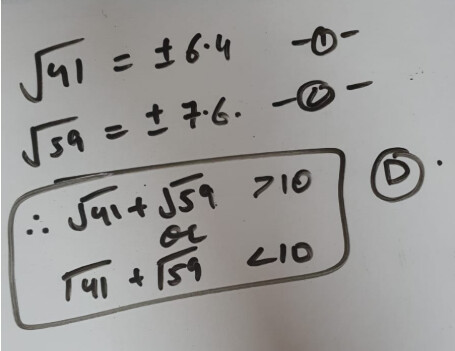 √41 = ± 6.4 -①-
√59 = ± 7.6. -②-
∴ √41 + √59 >10 Ⓓ.
or
√41 + √59 <10